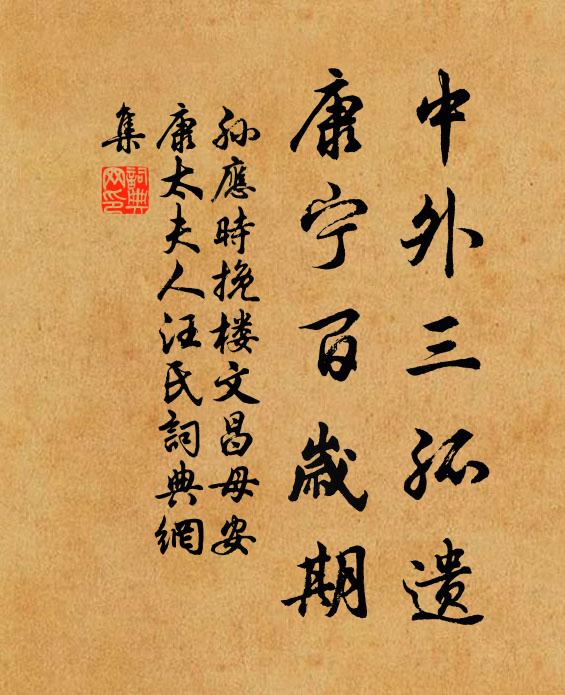 中外三孤遗
康宁百歲期
孙應時挽楼文昌母安
康太夫人汪氏詞典網
集
詞典
网印